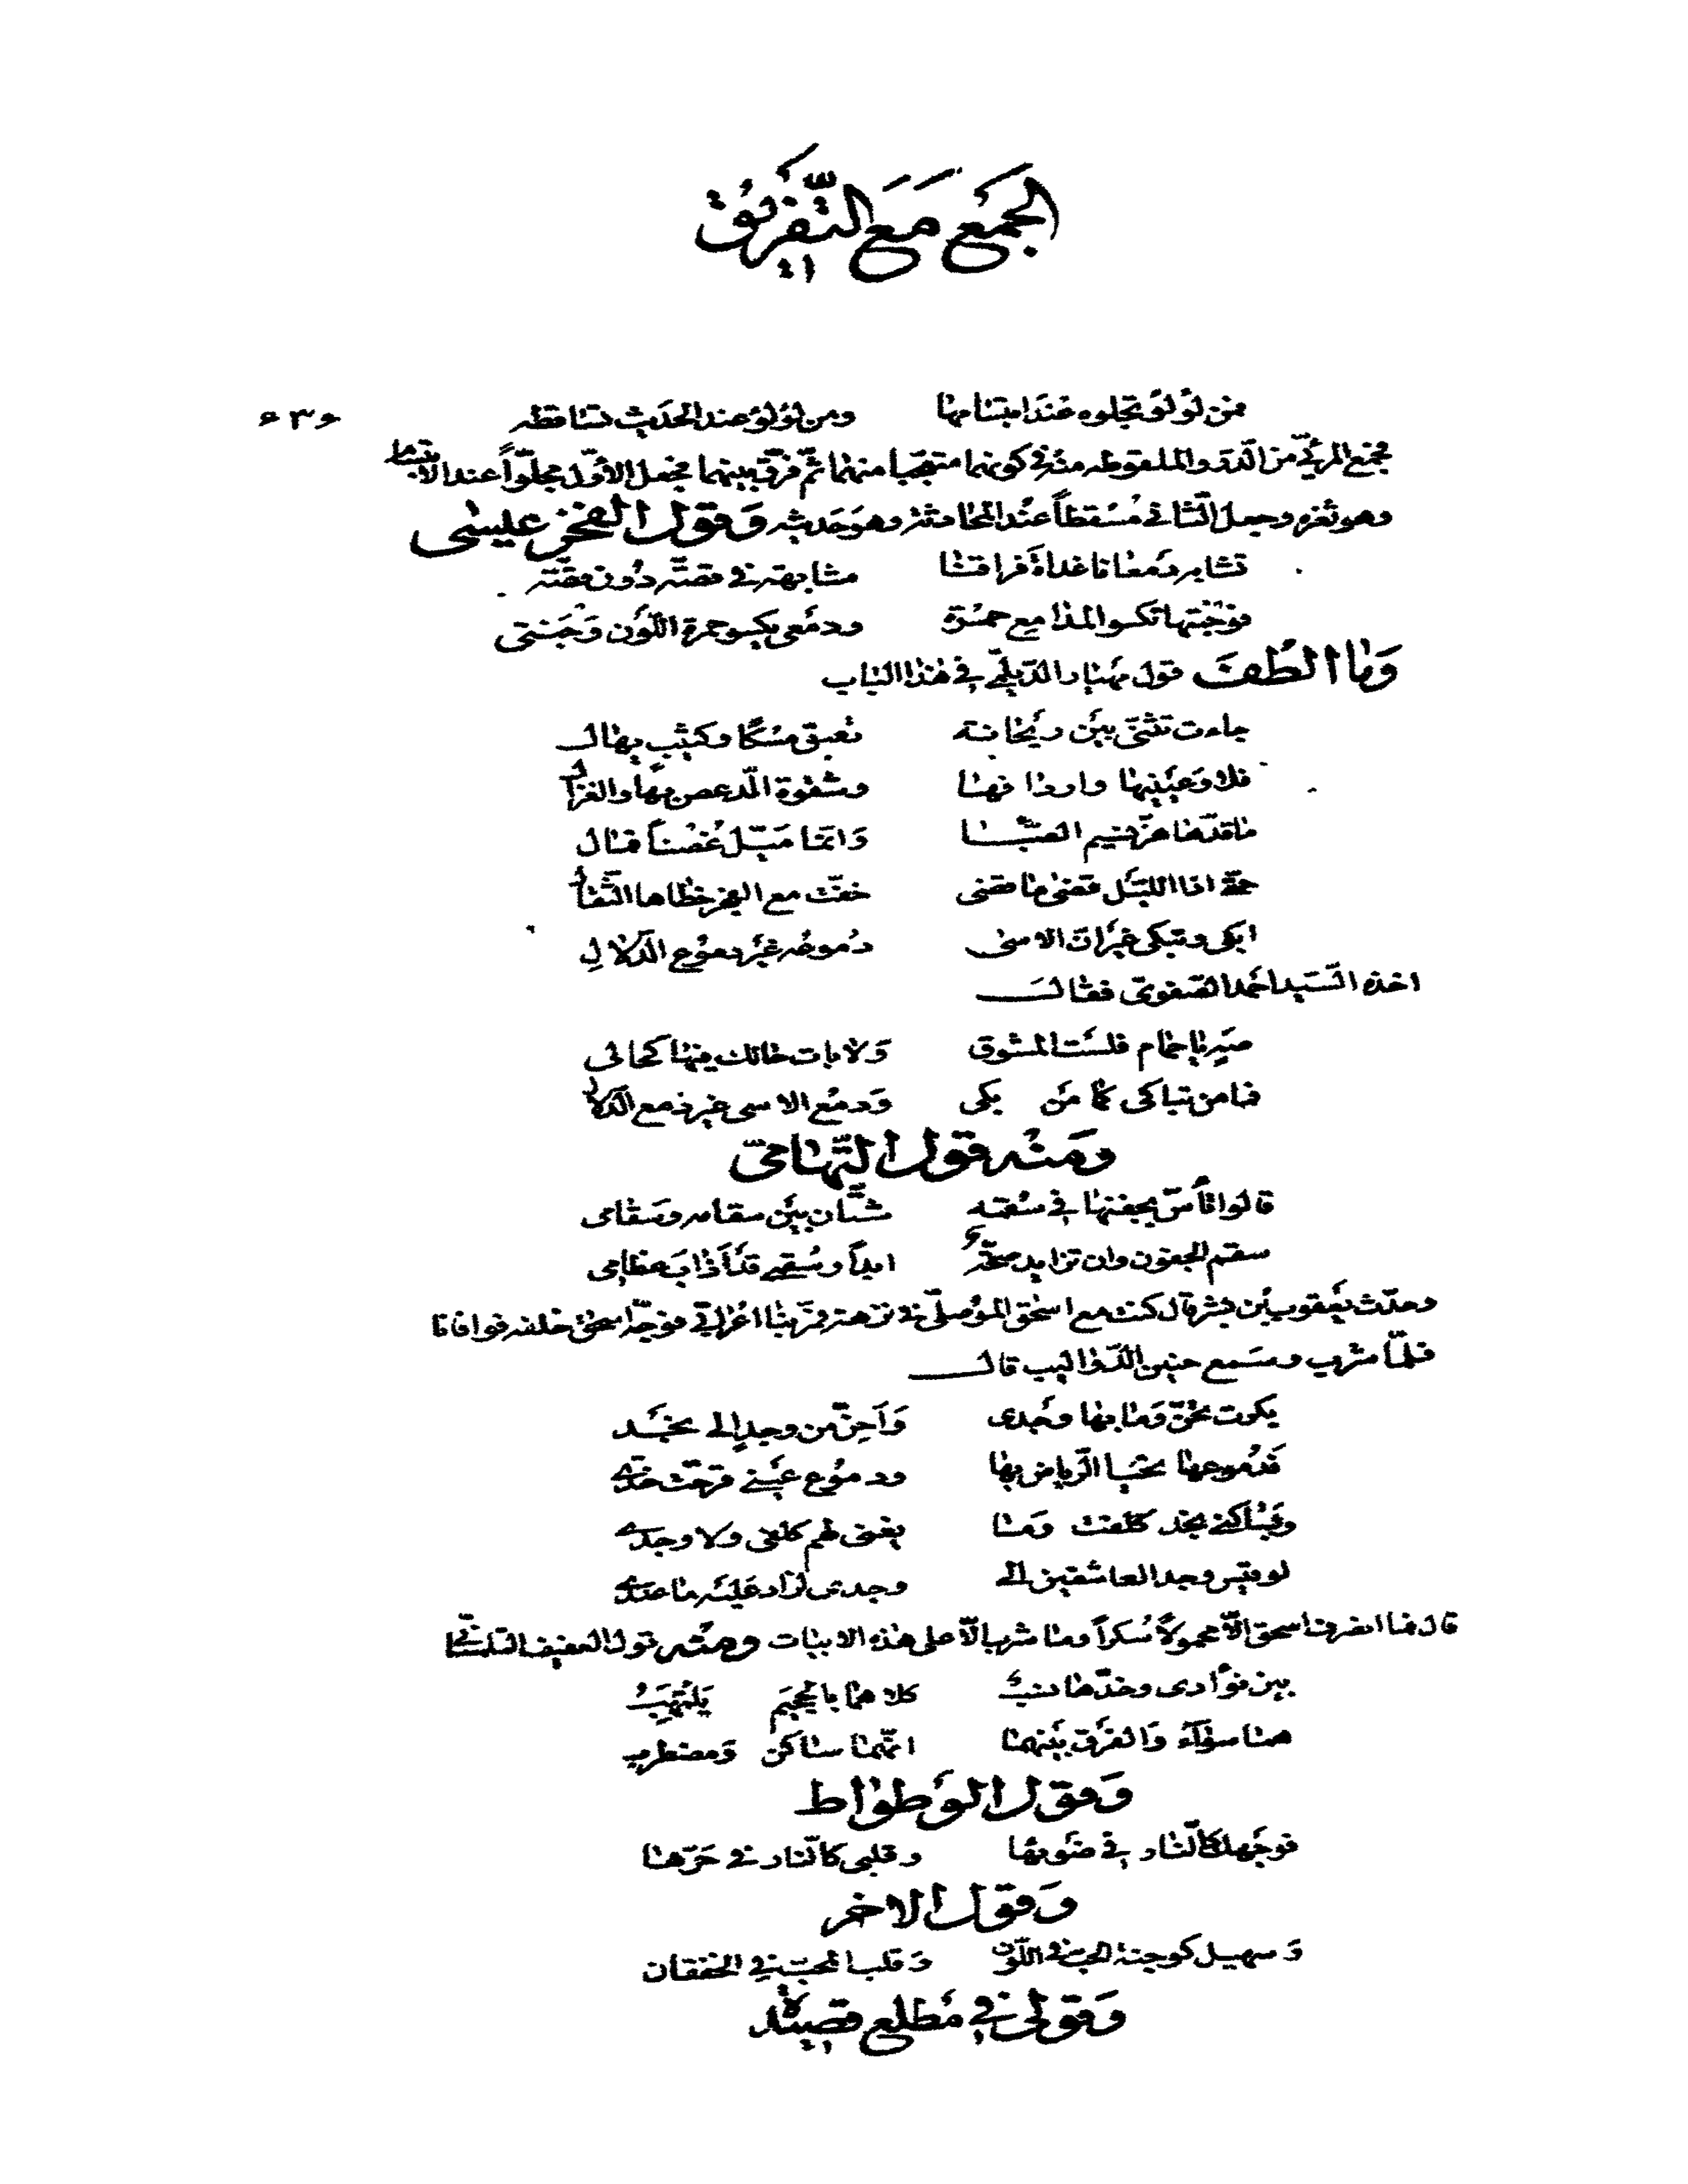 الجمع مع التفريق
فمن لؤلؤ تجلوه عند ابتسامها ومن لؤلؤ عند الحديث تساقطه
فجمع المرئي من الدر والملفوظ منه في كونهما متعجبا منهما ثم فرق بينهما فجعل الأول مجلوّاً عند الابتسام
وهو ثغره وجعل الثاني مسقطاً عند المحادثة وهو حديثه وقول الفخر عيسى
تشابه دمعانا غداة فراقنا مشابهة في قصّة دون قصّة
فوجنتها تكسو المدامع حمرة ودمعي يكسو حمرة اللون وجنتي
وما الطف قول مهيار الديلمي في هذا الباب
جاءت تثنّى بين ريحانة تعبق مسكا وكثيب يهال
فلا وعينيها واردافها وشقوة الدعص بها والغزال
ما قدّها هزّ نسيم الصبا وانما ميّل غصناً فمال
حتى اذا الليل قضى ما قضى خفّت مع الفجر خطاها الثقال
ابكى وتبكى غير ان الاسى دموعه غير دموع الدلال
اخذه السيد احمد الصفوي فقال
يا حمام فلست المشوق ولا بات حالك فيها كحالي
فما من تباكى كما من بكى ودمع الاسى غير دمع الدلال
ومنه قول التهامي
قالوا بجفنها في سقمه شتّان بين سقامه وسقامي
سقم الجفون وان تزايد صحّة ابداً وسقمي قد أذاب عظامي
وحدّث يعقوب بن بشر قال كنت مع اسحق الموصلي في نزهة فمرّ بنا اعرابي فوجّه اسحق خلفه فوافانا
فلمّا شرب وسمع حنين الدواليب قال
بكرت تحنّ وما بها وجدي وأحنّ من وجدٍ الى نجد
فدموعها تحيا الرياض بها ودموع عيني قرحت خدّي
وبساكني نجد كلفت وما يغني لهم كلفي ولا وجدي
لو قيس وجد العاشقين الى وجدى لزاد عليه ما عندي
قال فما انصرف اسحق الاّ محمولاً سكراً وما شرب الاّ على هذه الابيات ومنه قول العفيف التلمساني
بين فؤادى وخدّها نسب كلاهما بالجحيم يلتهب
هما سواء والفرق بينهما انّهما ساكن ومضطرب
وقول الوطواط
فوجهك كالنار في ضوئها وقلبي كالنار في حرّها
وقول الاخر
وسهيل كوجنة الحب في اللون وقلب المحب في الخفقان
وقولي في مطلع قصيدة